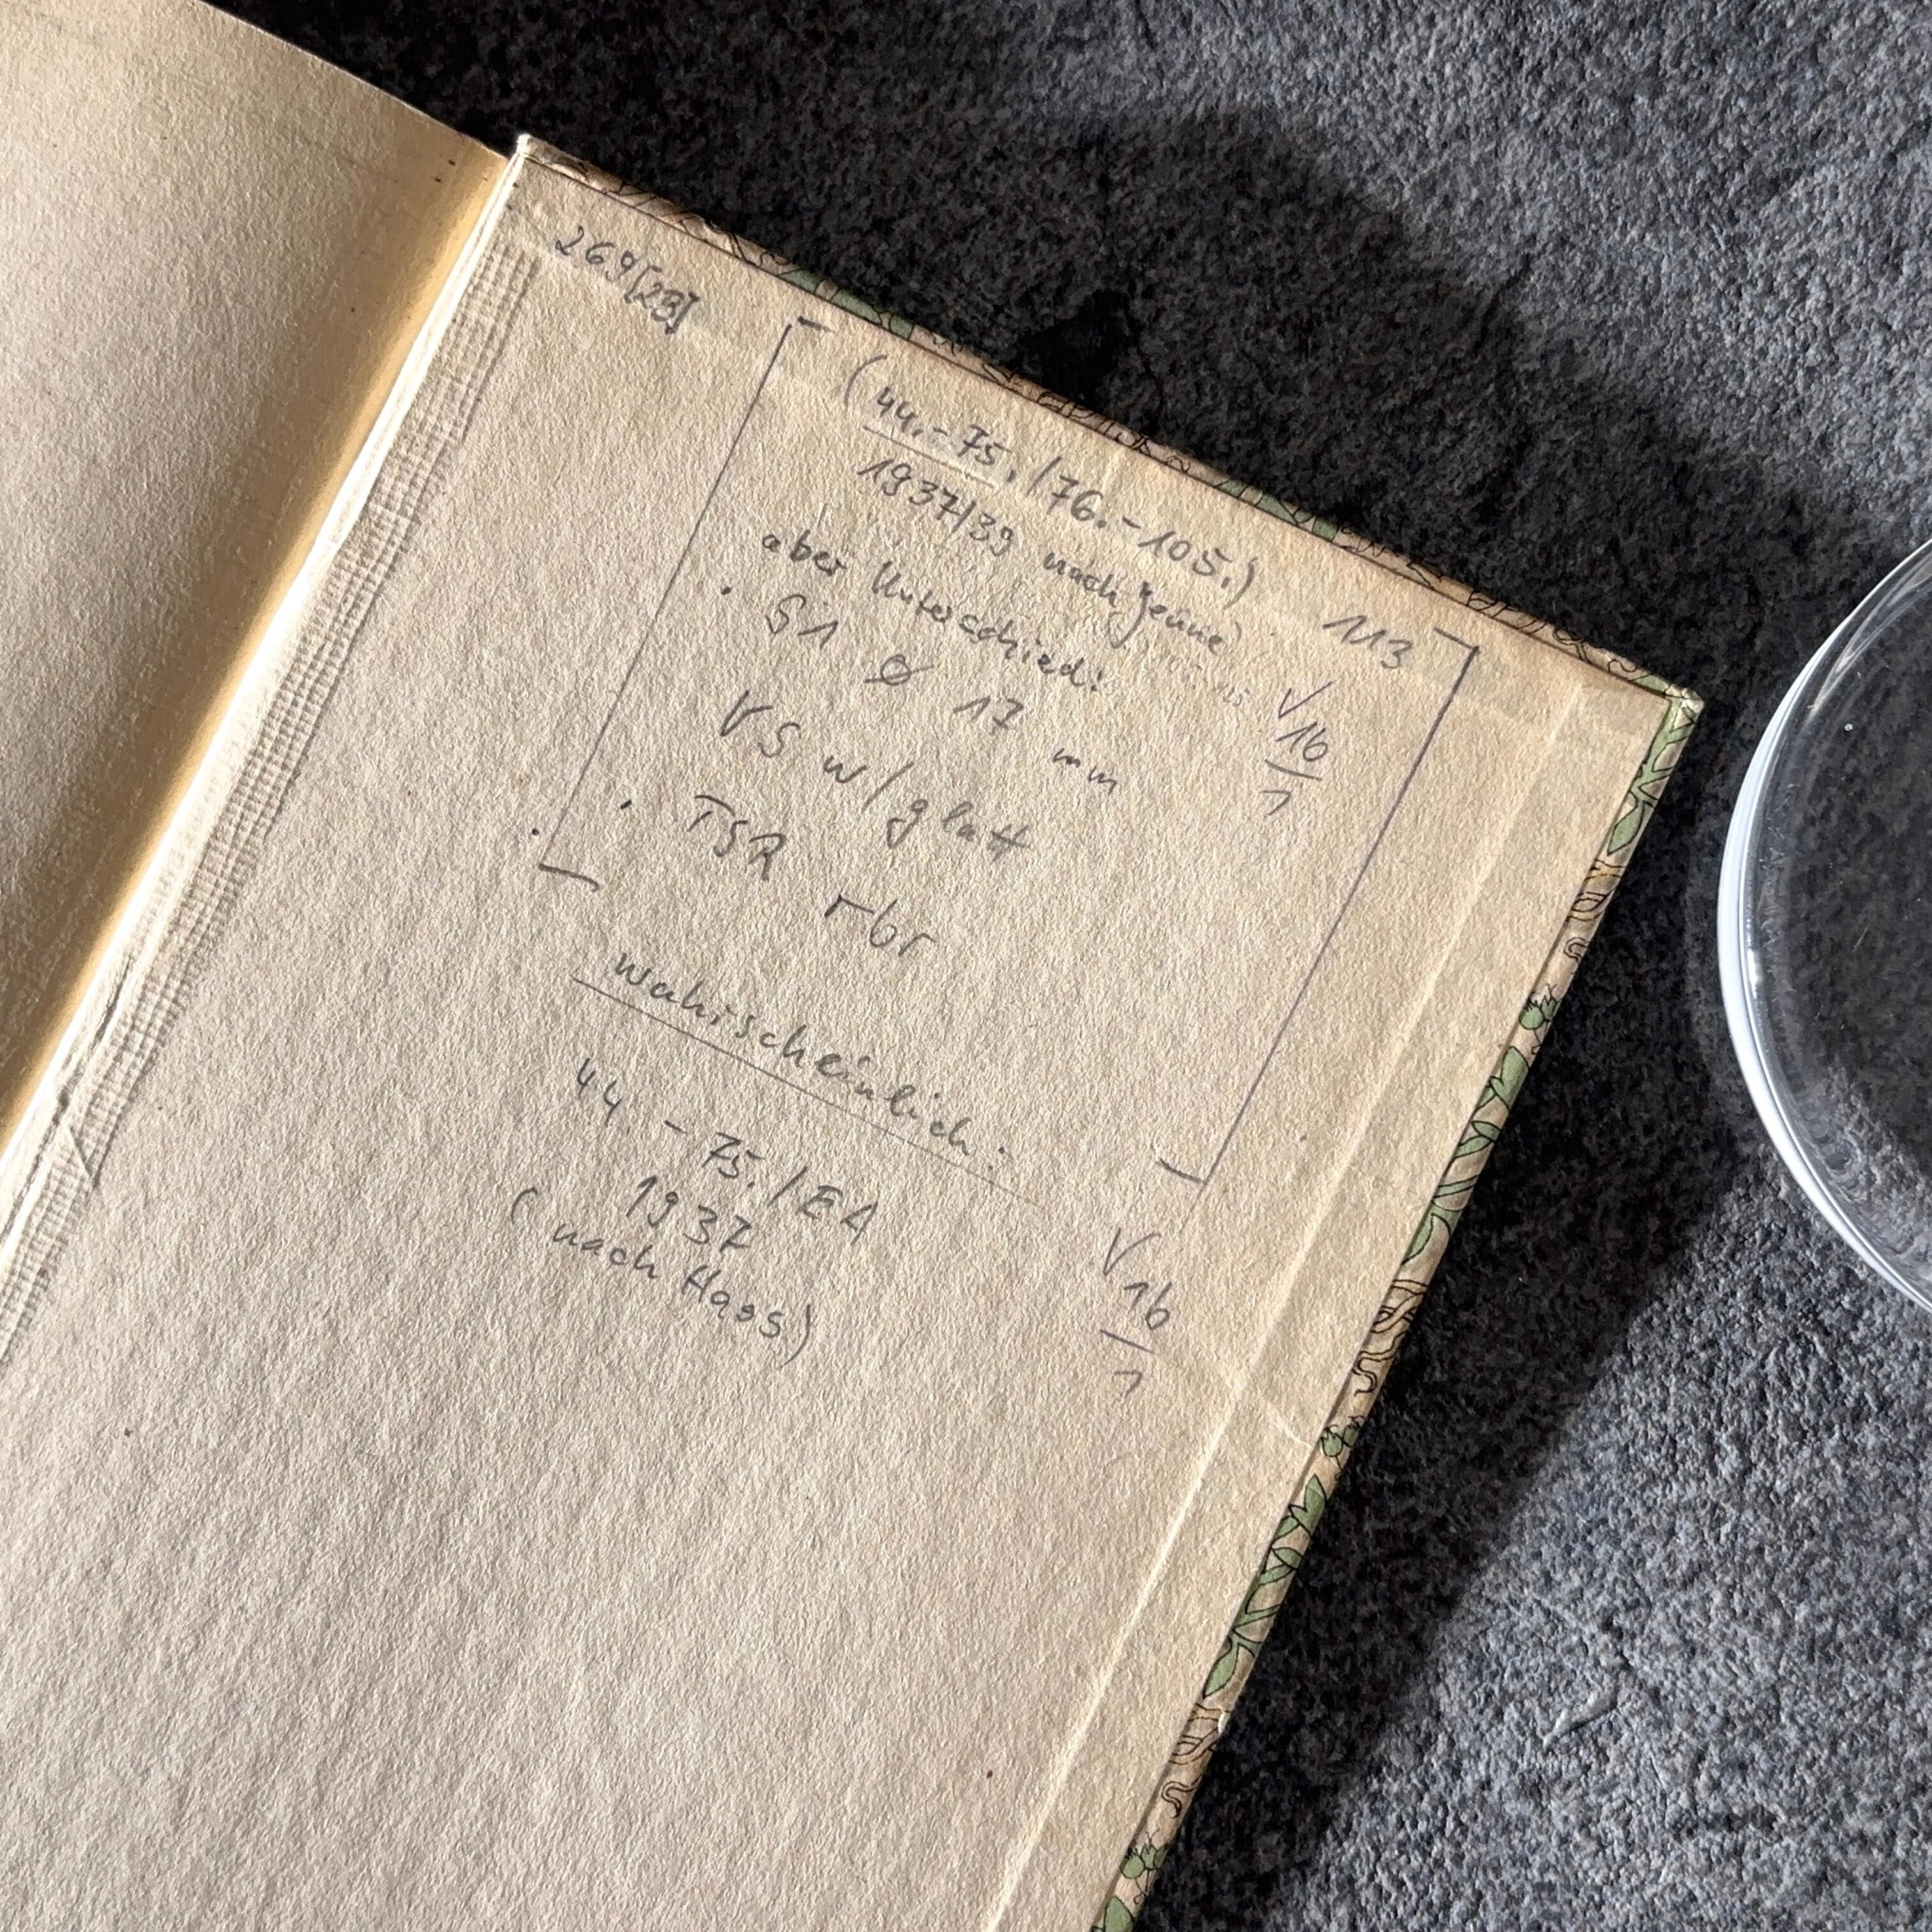 269[23]
(44.-75. / 76.-105.)
1937/39 nach Jenne 113
aber Unterschied: V16/1
• S1 Ø 17 mm
VS w/glatt
• TSR rbr
wahrscheinlich:
44. - 75. / EA
1937 V16/1
(nach Haas)